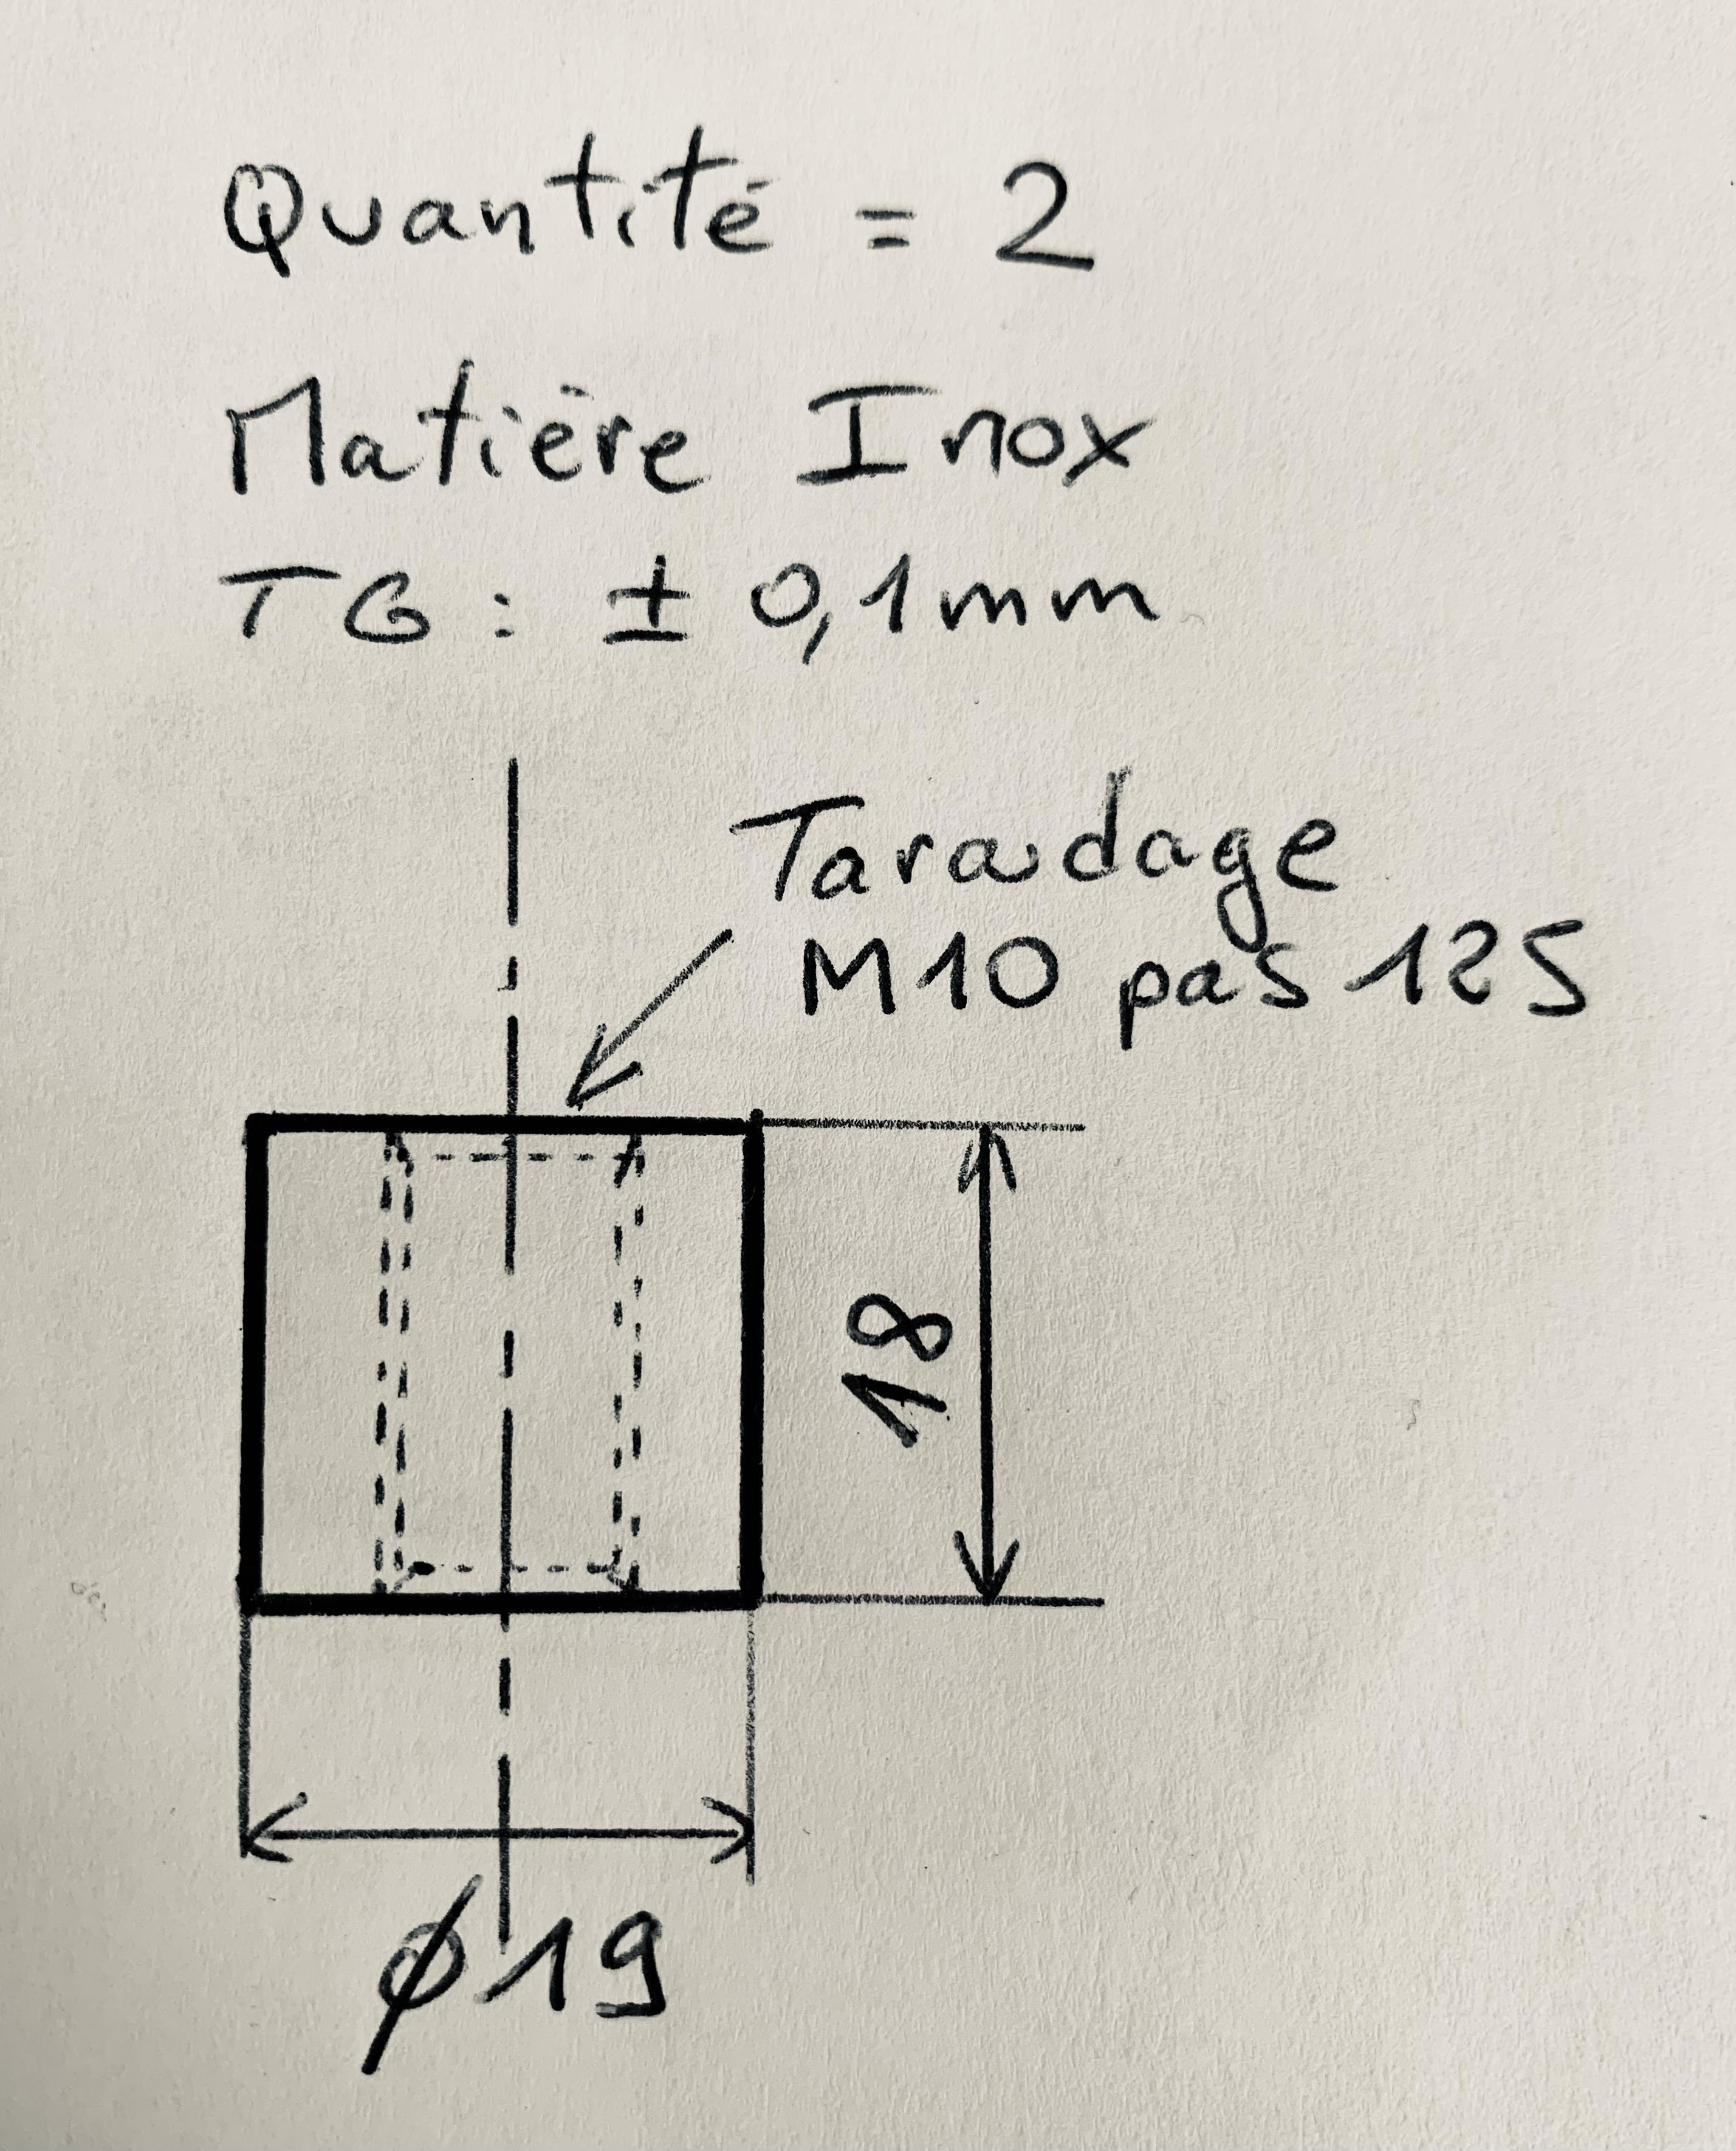 Quantité = 2
Matière Inox
TG : ± 0,1mm
Taraudage
M10 pas 125
18
ϕ19